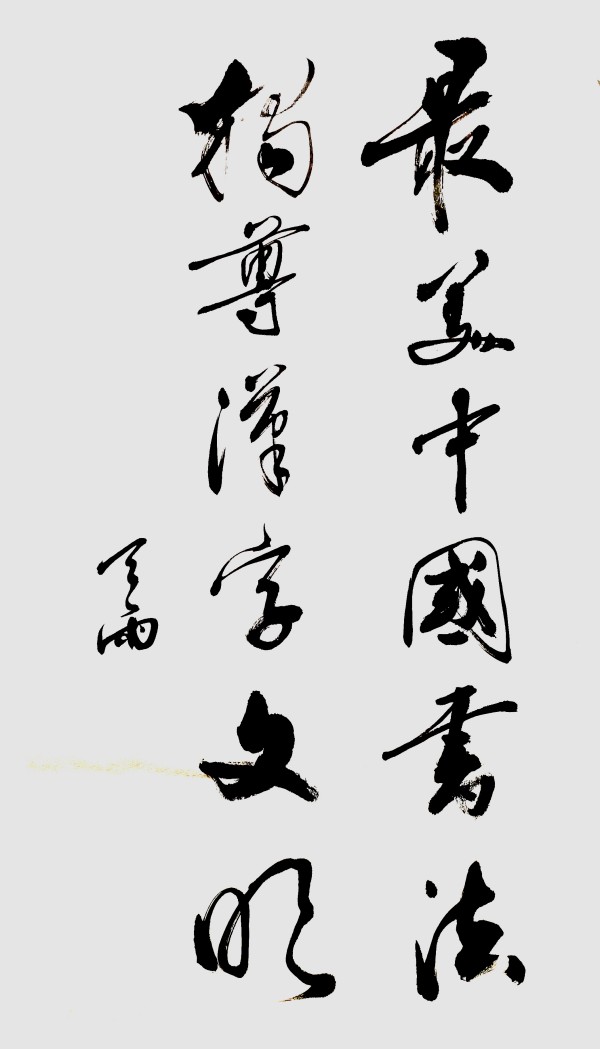 最美中國書法
獨尊漢字文明
天雨